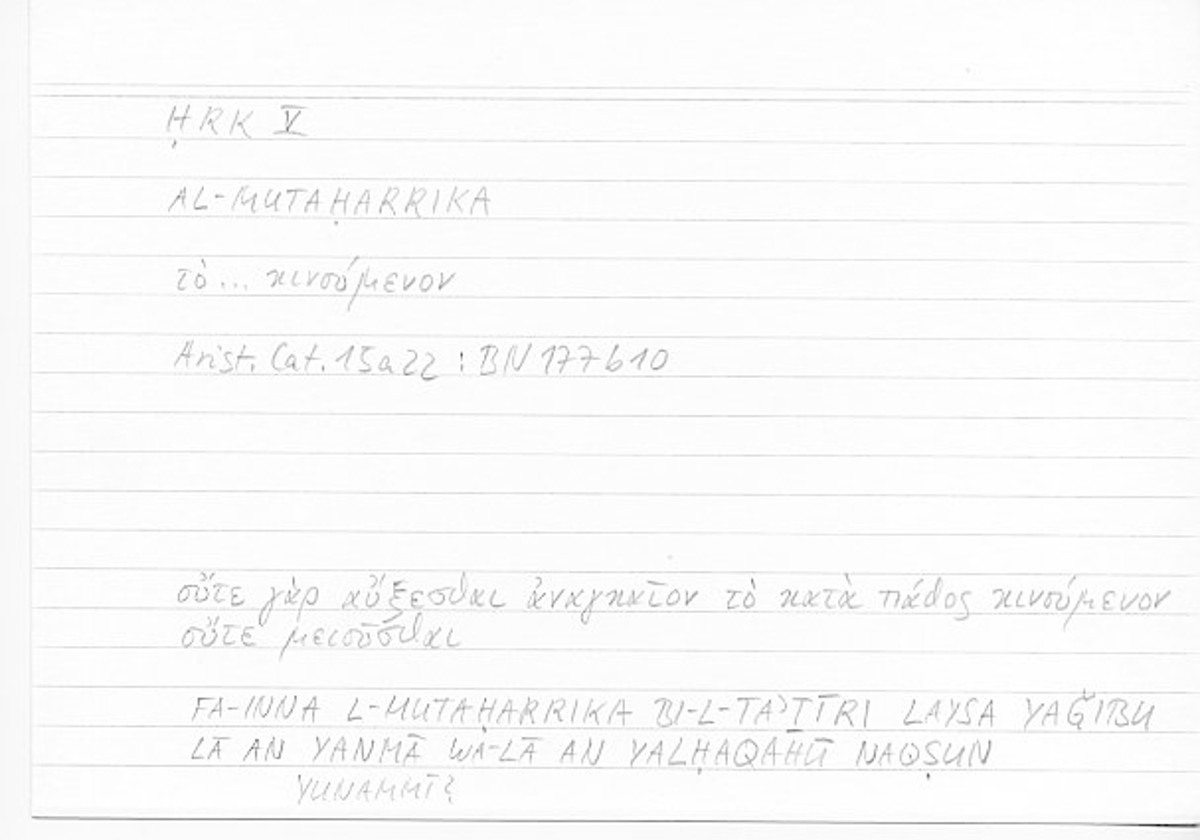 ḤRK V
AL-MUTAḤARRIKA
τὸ... κινούμενον
Arist. Cat. 15a22 : BN 177b10
οὔτε γὰρ αὔξεσθαι ἀναγκαῖον τὸ κατὰ πάθος κινούμενον
οὔτε μειοῦσθαι
FA-INNA L-MUTAḤARRIKA BI-L-TAʾṮĪRI LAYSA YAǦIBU
LĀ AN YANMĀ WA-LĀ AN YALḤAQAHŪ NAQṢUN
YUNAMMĪ?